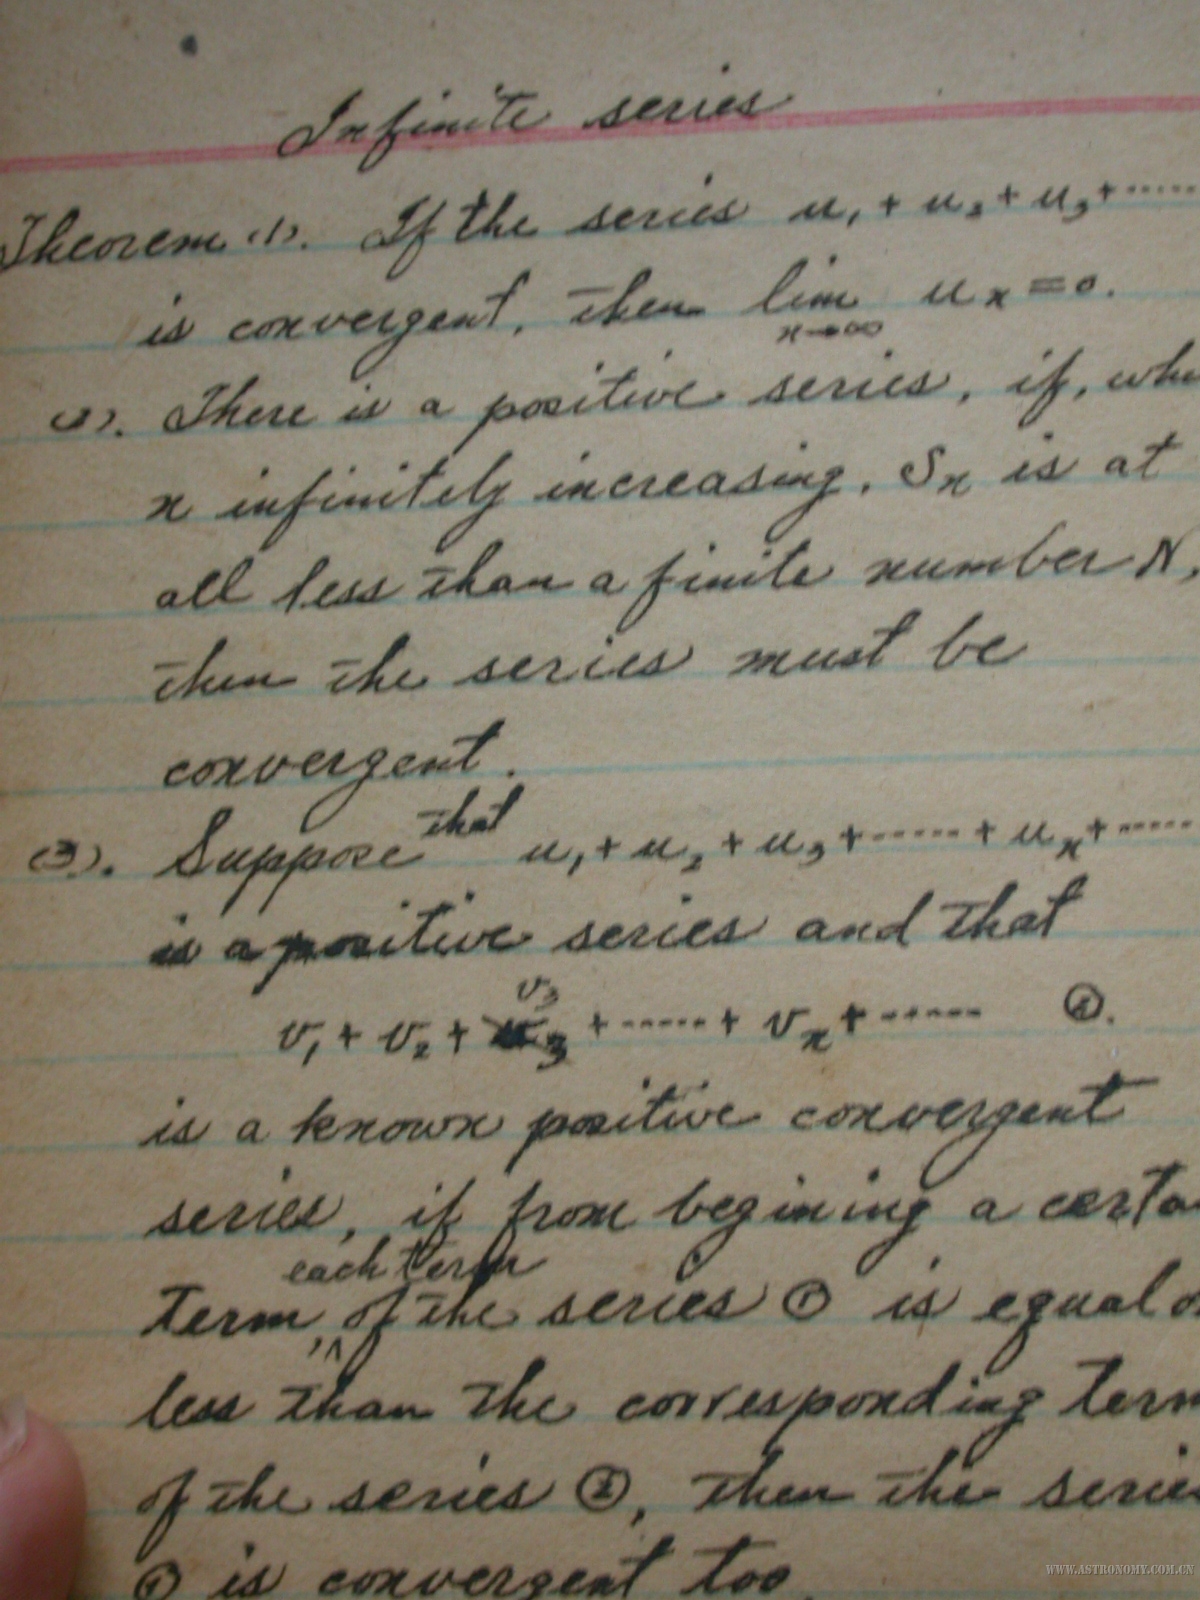 Infinite series
Theorem (1). If the series u₁ + u₂ + u₃ + ......
is convergent, then lim uₙ = 0.
n→∞
(2). There is a positive series, if, whe
n infinitely increasing, Sₙ is at
all less than a finite number N,
then the series must be
convergent.
(3). Suppose that u₁ + u₂ + u₃ + ...... + uₙ + ......
is a positive series and that
v₁ + v₂ + v₃ + ...... + vₙ + ...... ②.
is a known positive convergent
series, if from begining a certa
term, each term of the series ① is equal o
less than the corresponding term
of the series ②, then the serie
① is convergent too
WWW.ASTRONOMY.COM.CN